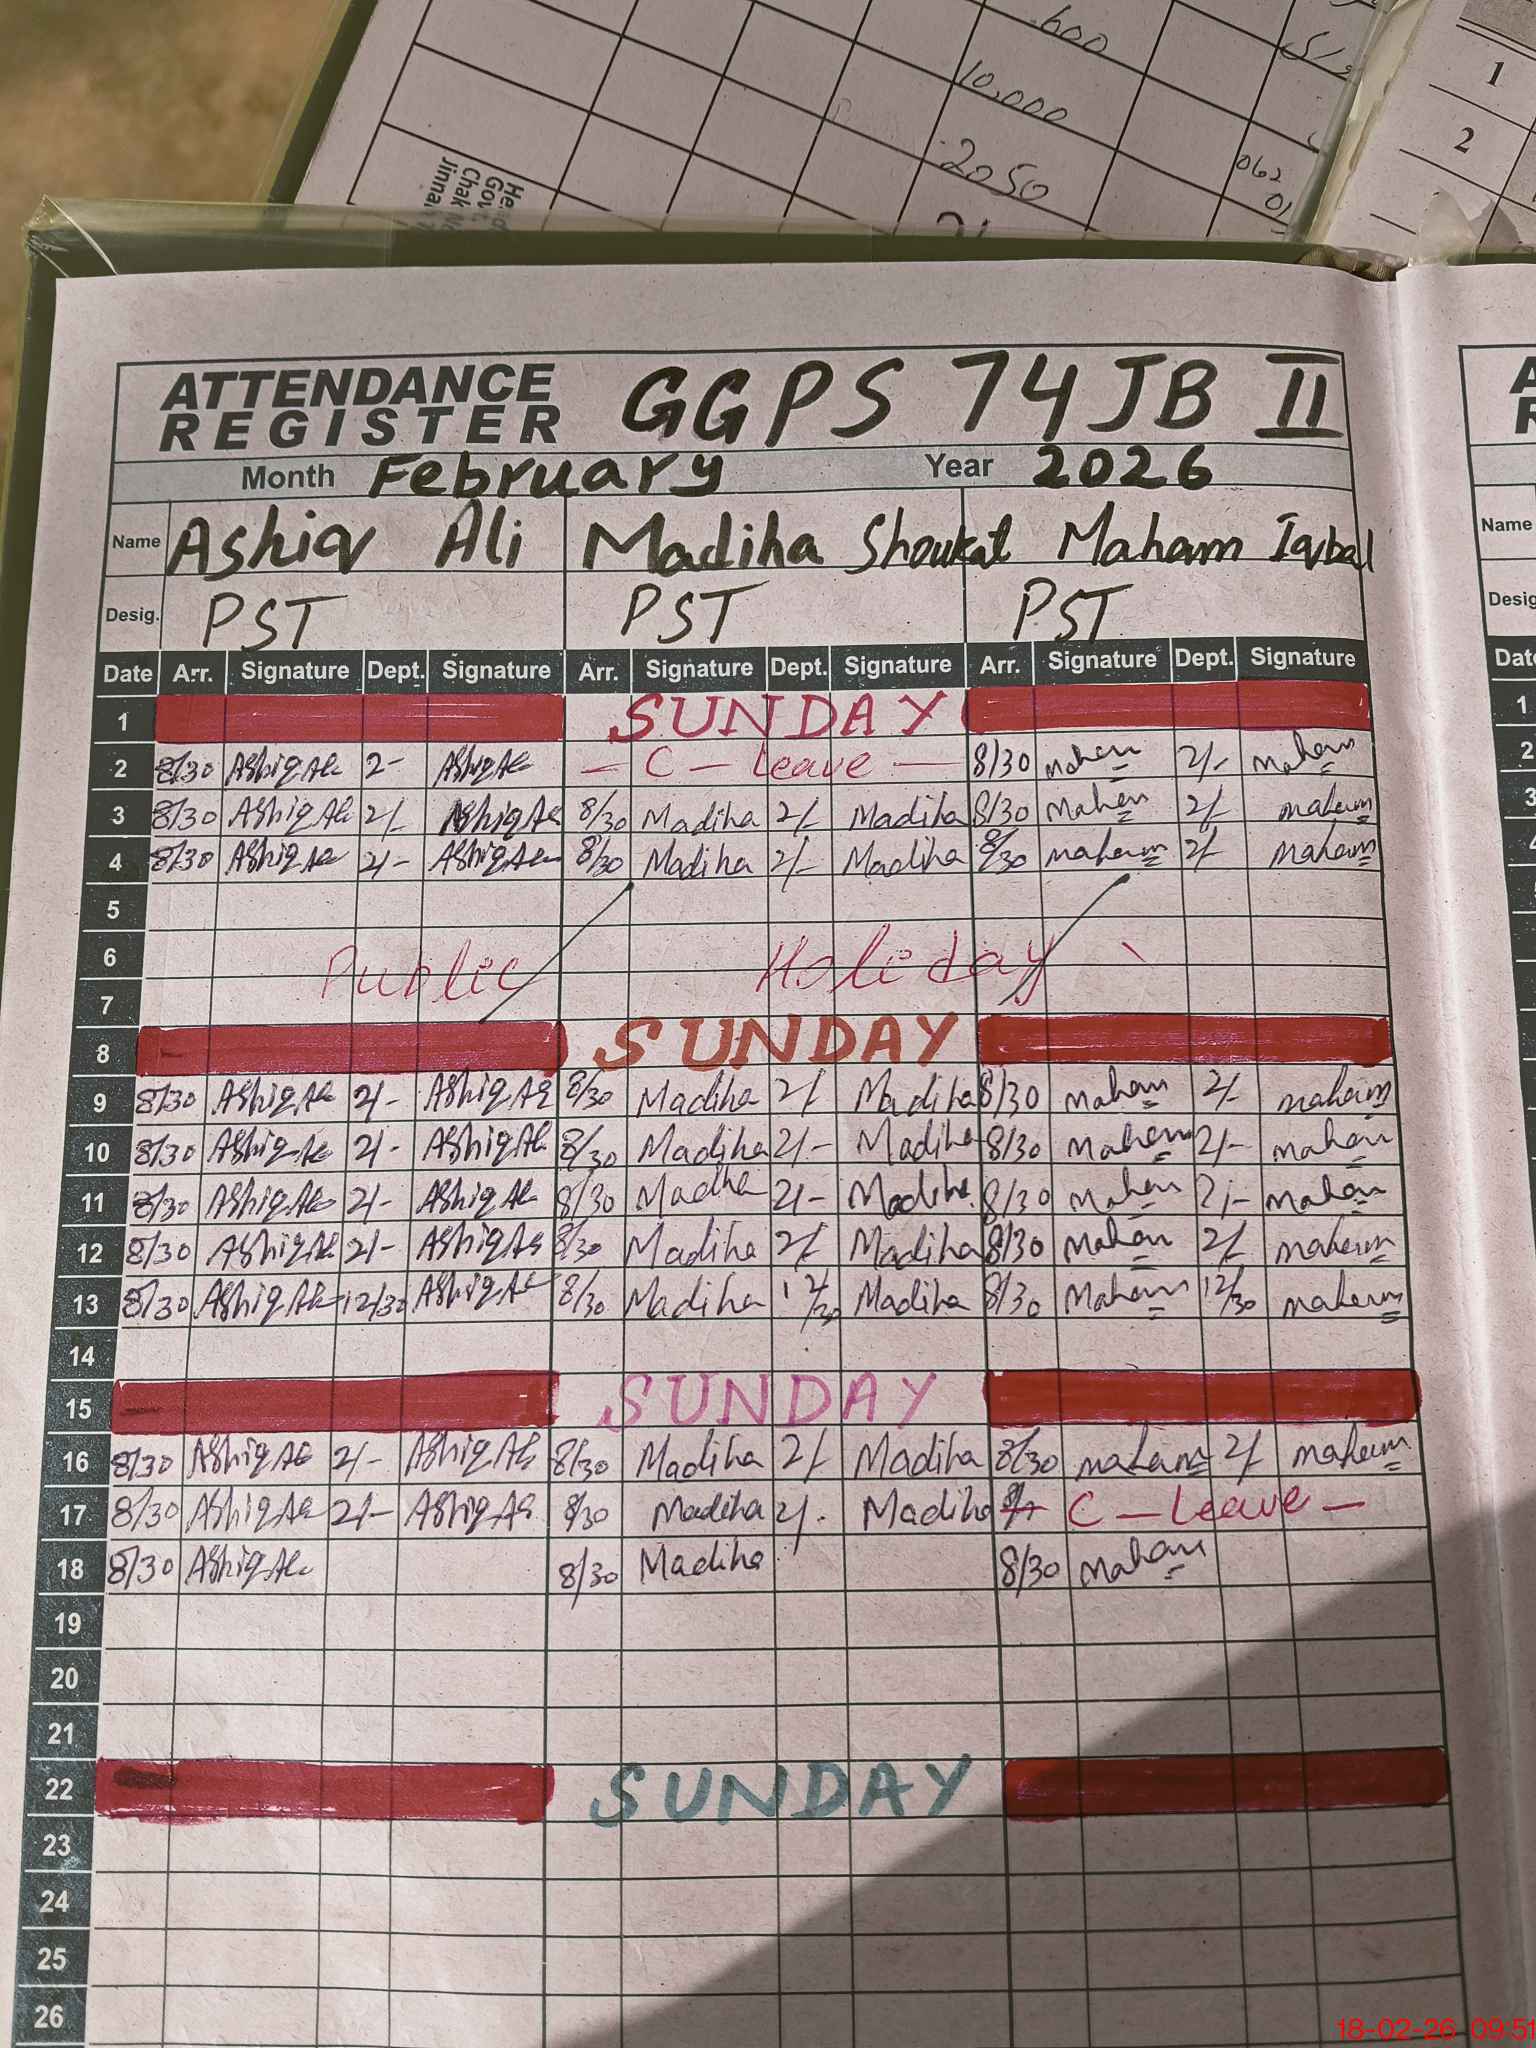 600
10,000
2050
062
01
1
2
ATTENDANCE REGISTER GGPS 74 JB II
Month February Year 2026
Name Ashiq Ali Madiha Shoukat Maham Iqbal
Desig. PST PST PST
Date Arr. Signature Dept. Signature Arr. Signature Dept. Signature Arr. Signature Dept. Signature
1 SUNDAY
2 8/30 AshiqAli 2- AshiqAli - C - Leave - 8/30 maham 2/- maham
3 8/30 AshiqAli 2/- AshiqAli 8/30 Madiha 2/- Madiha 8/30 maham 2/- maham
4 8/30 AshiqAli 2/- AshiqAli 8/30 Madiha 2/- Madiha 8/30 maham 2/- maham
5
6 Public Holiday
7
8 SUNDAY
9 8/30 AshiqAli 2/- AshiqAli 8/30 Madiha 2/- Madiha 8/30 maham 2/- maham
10 8/30 AshiqAli 2/- AshiqAli 8/30 Madiha 2/- Madiha 8/30 Maham 2/- maham
11 8/30 AshiqAli 2/- AshiqAli 8/30 Madiha 2/- Madiha 8/30 Maham 2/- maham
12 8/30 AshiqAli 2/- AshiqAli 8/30 Madiha 2/- Madiha 8/30 Maham 2/- maham
13 8/30 AshiqAli 12/30 AshiqAli 8/30 Madiha 12/30 Madiha 8/30 Maham 12/30 maham
14
15 SUNDAY
16 8/30 AshiqAli 2/- AshiqAli 8/30 Madiha 2/- Madiha 8/30 maham 2/- maham
17 8/30 AshiqAli 2/- AshiqAli 8/30 Madiha 2/- Madiha - C - Leave -
18 8/30 AshiqAli 8/30 Madiha 8/30 Maham
19
20
21
22 SUNDAY
23
24
25
26
18-02-26 09:51